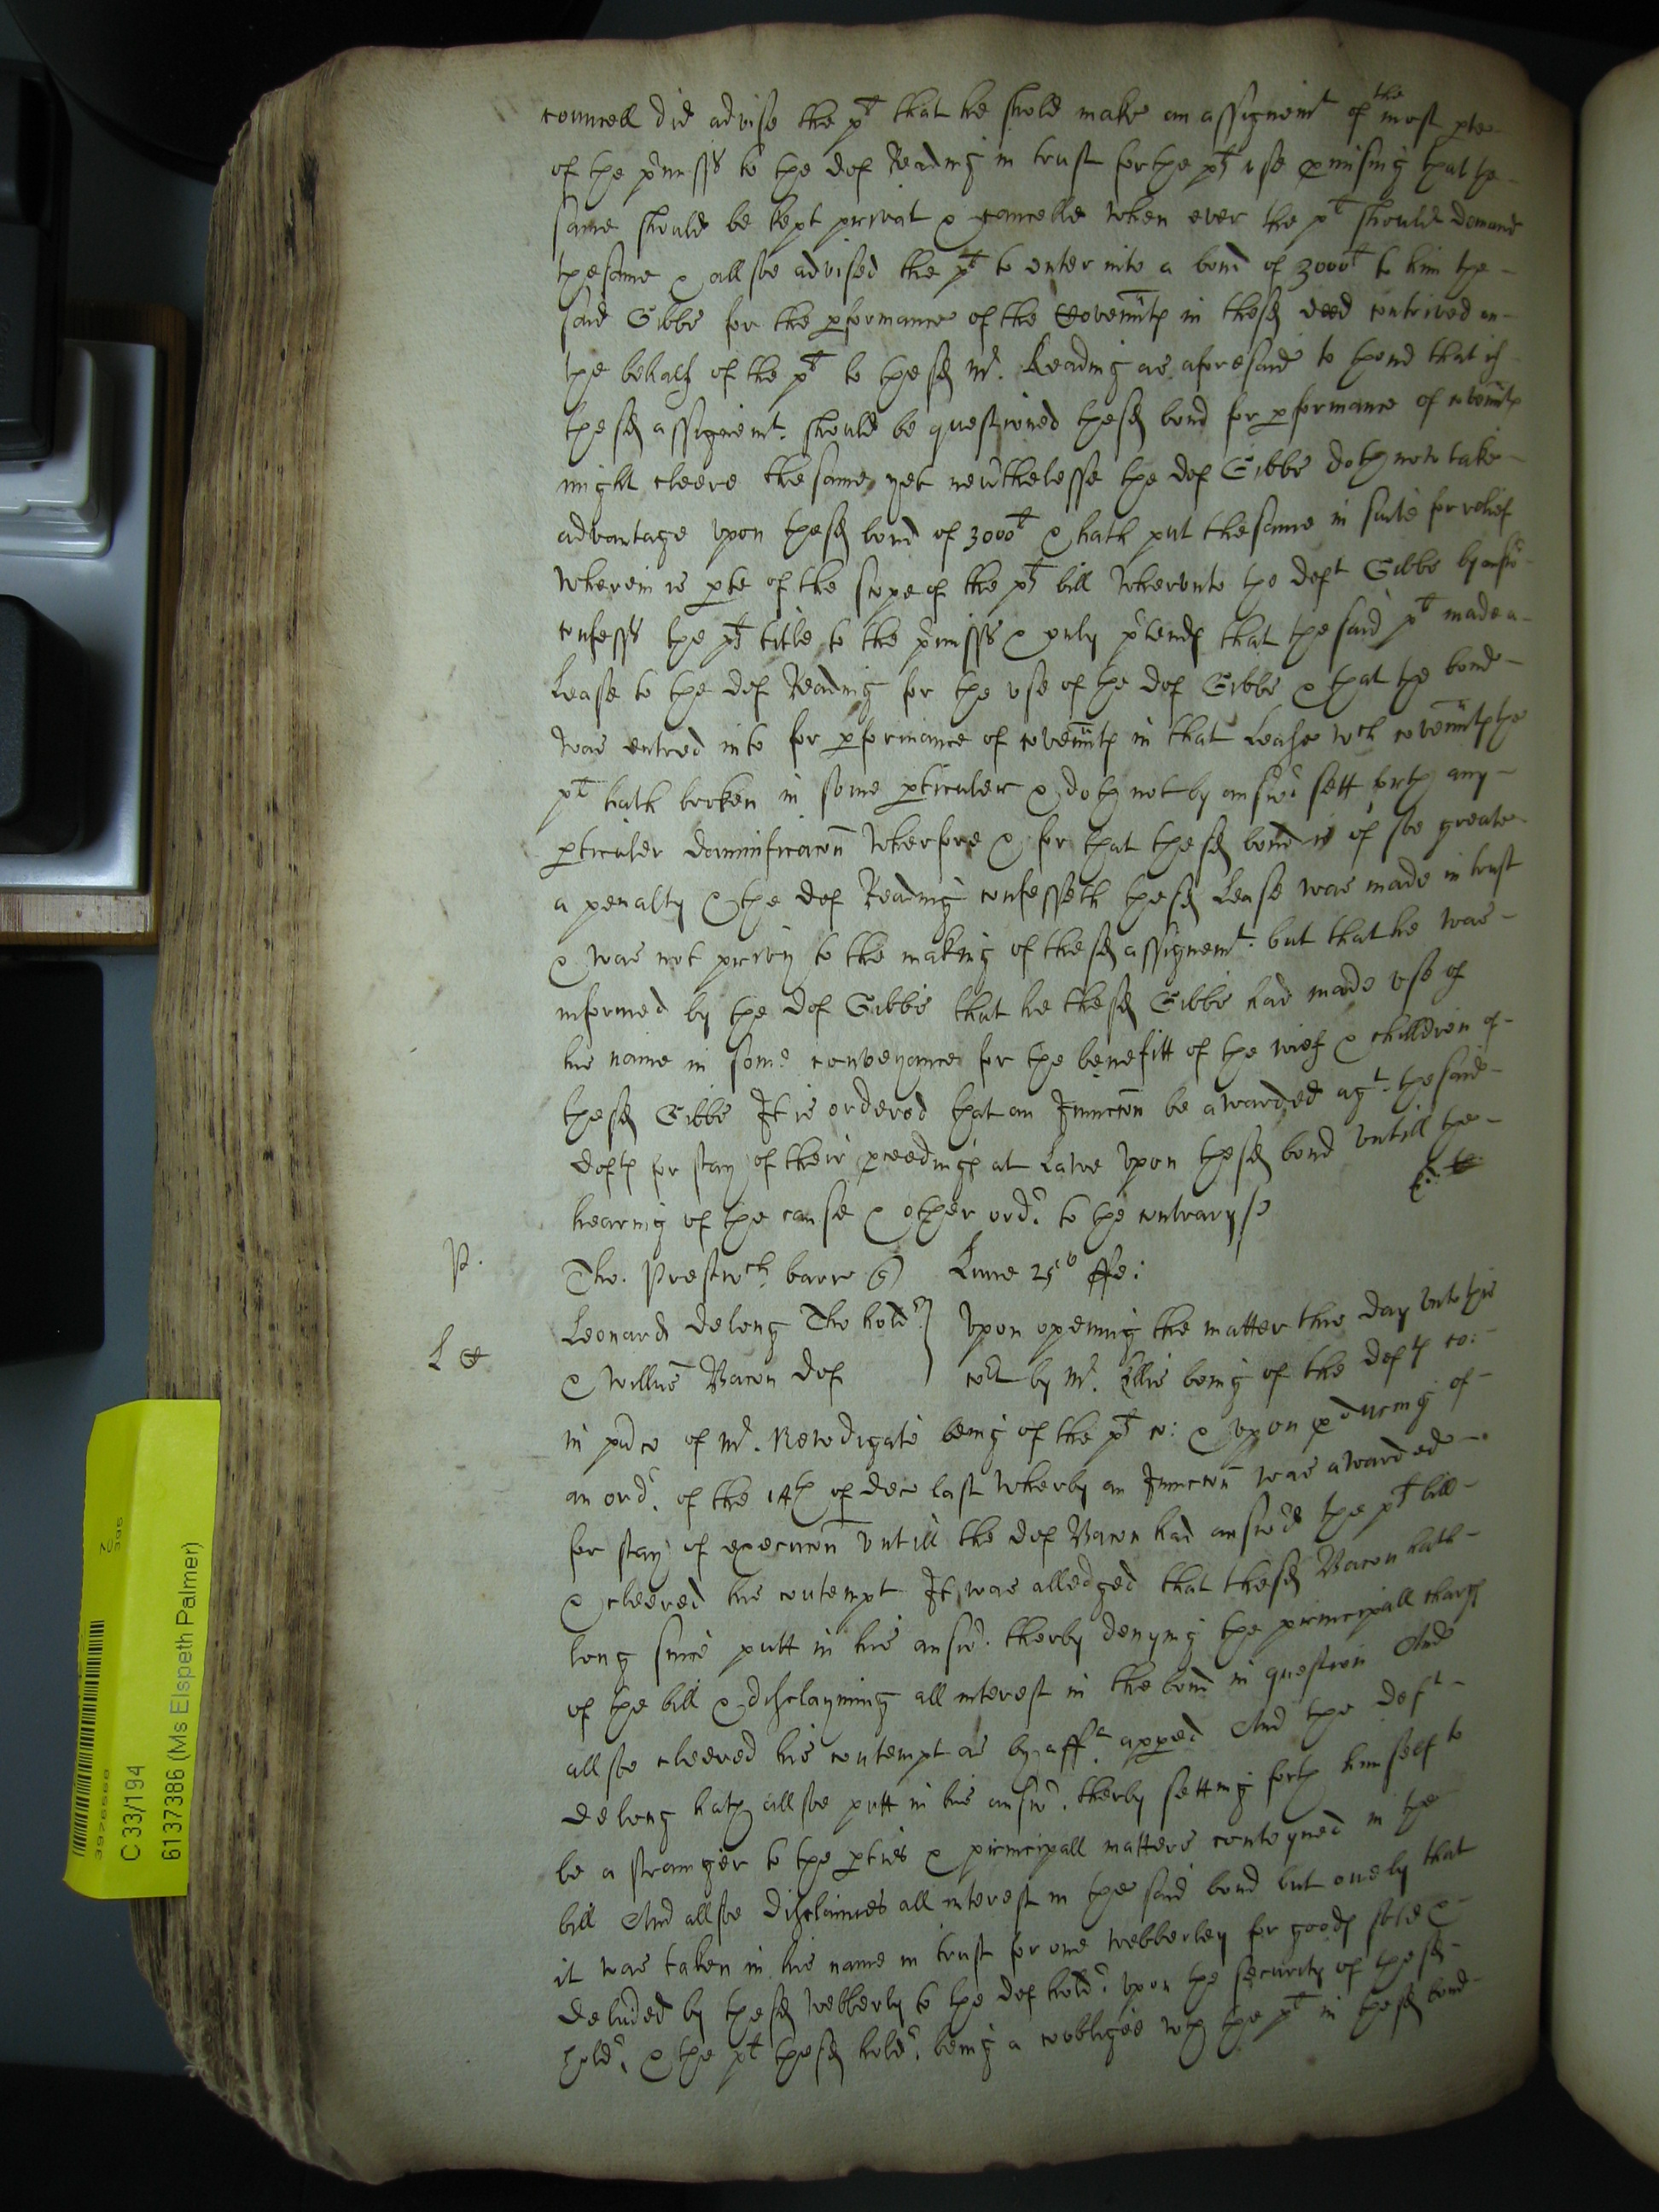 councell did advise the plt that he shold make an assignemt of the most pte
of the p'miss's to the def Reading in trust for the plts use p'mising that the
same should be kept privat & cancelld when ever the plt should demand
the same & allsoe advised the plt to enter into a bond of 3000l to him the
said Gibbs for the pformance of the Covennts in the sd deed contrived on
the behalf of the plt to the sd Mr. Reading as aforesaid to thend that if
the sd assignemt. should be questioned the sd bond for pformance of covennts
might cleere the same yet nev'thelesse the def Gibbs doth now take
advantage upon the sd bond of 3000l & hath put the same in suite for relief
wherein is pte of the scope of the plts bill Wherunto the deft Gibbs by answ'
confess's the plts title to the p'miss's & only p'tends that the said plt made a
Lease to the def Reading for the use of the def Gibbs & that the bond
was entred into for pformance of covennts in that Lease wch covennts the
plt hath broken in some pticuler & doth not by answ' sett forth any
pticuler damnificacon Wherfore & for that the sd bond is of soe greate
a penalty & the def Reading confesseth the sd Lease was made in trust
& was not privy to the making of the sd assignemt. but that he was
informed by the def Gibbs that he the sd Gibbs had made use of
his name in some conveyance for the benefitt of the wief & children of
the sd Gibbs It is ordered that an Iniuncon be awarded agt. the said
defts for stay of their pceedings at Lawe upon the sd bond untill the
hearing of the cause & other ord' to the contrary
P. Tho. Prestwch barr Lune 25o
L Leonard delong Tho hold' } Upon opening the matter this day unto this
& Willm Bacon def } cot by Mr. Ellis being of the defts co:
in pnce of Mr. Newdigate being of the plts co: & upon pducing of
an ord'. of the 14th of dec last wherby an Iniuncon was awarded
for stay of execucon untill the def Bacon had answ'd the plts bill
& cleered his contempt It was alledged that the sd Bacon hath
long since putt in his answ'. therby denying the principall charge
of the bill & disclayming all interest in the bond in question And
allsoe cleered his contempt as by afft. apped And the deft
delong hath allsoe putt in his answ'. therby setting forth himself to
be a stranger to the pties & principall matters conteyned in the
bill And allsoe disclaimes all interest in the said bond but onely that
it was taken in his name in trust for one Webberley for goods sold &
deliv'ed by the sd Webberly to the def hold' upon the security of the sd
hold'. & the plt the sd hold'. being a coobligee wth the plt in the sd bond
C 33/194
6137386 (Ms Elspeth Palmer)